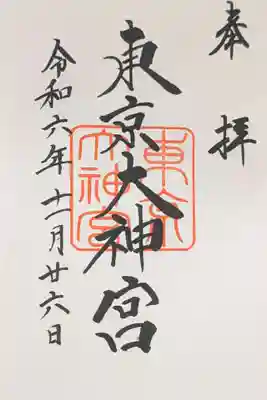 奉拝
東京大神宮
東京大神宮
令和六年十一月廿六日